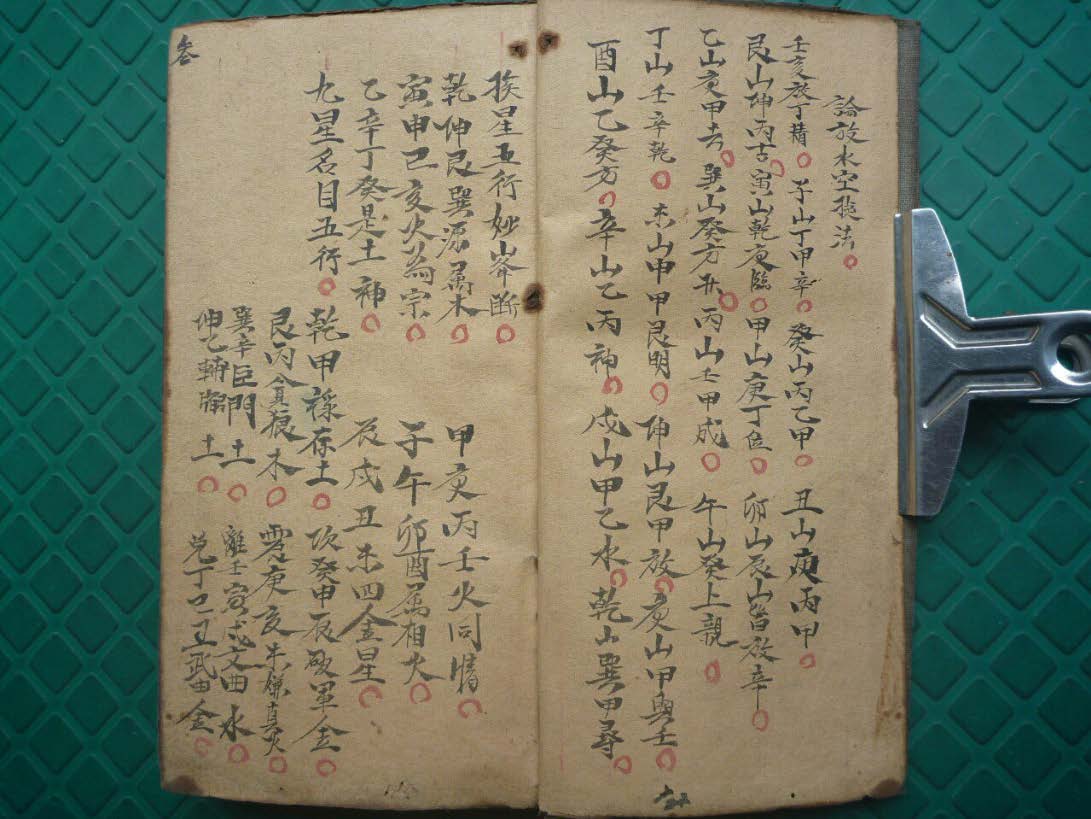 論放水空挨法
壬亥放丁精 子山丁甲辛 癸山丙乙甲 丑山庚丙甲
艮山坤丙吉 寅山乾庚臨 甲山庚丁位 卯山辰山皆放辛
乙山庚甲去 巽山癸方井 丙山壬甲成 午山癸上親
丁山壬辛乾 未山申甲艮明 伸山艮甲放 亥山甲與壬
酉山乙癸方 辛山乙丙神 戍山甲乙水 乾山巽甲尋
挨星五行妙峯断
乾伸艮巽源属木 甲庚丙壬火同情
寅申巳亥火為宗 子午卯酉属相火
乙辛丁癸是土神 辰戍丑未四金星
九星名目五行 乾甲祿存土 坎癸申辰破軍金
艮丙貪狼木 震庚亥未燫真火
巽辛巨門土 離壬寅戍文曲水
伸乙輔弼土 兌丁巳丑武曲金
叁